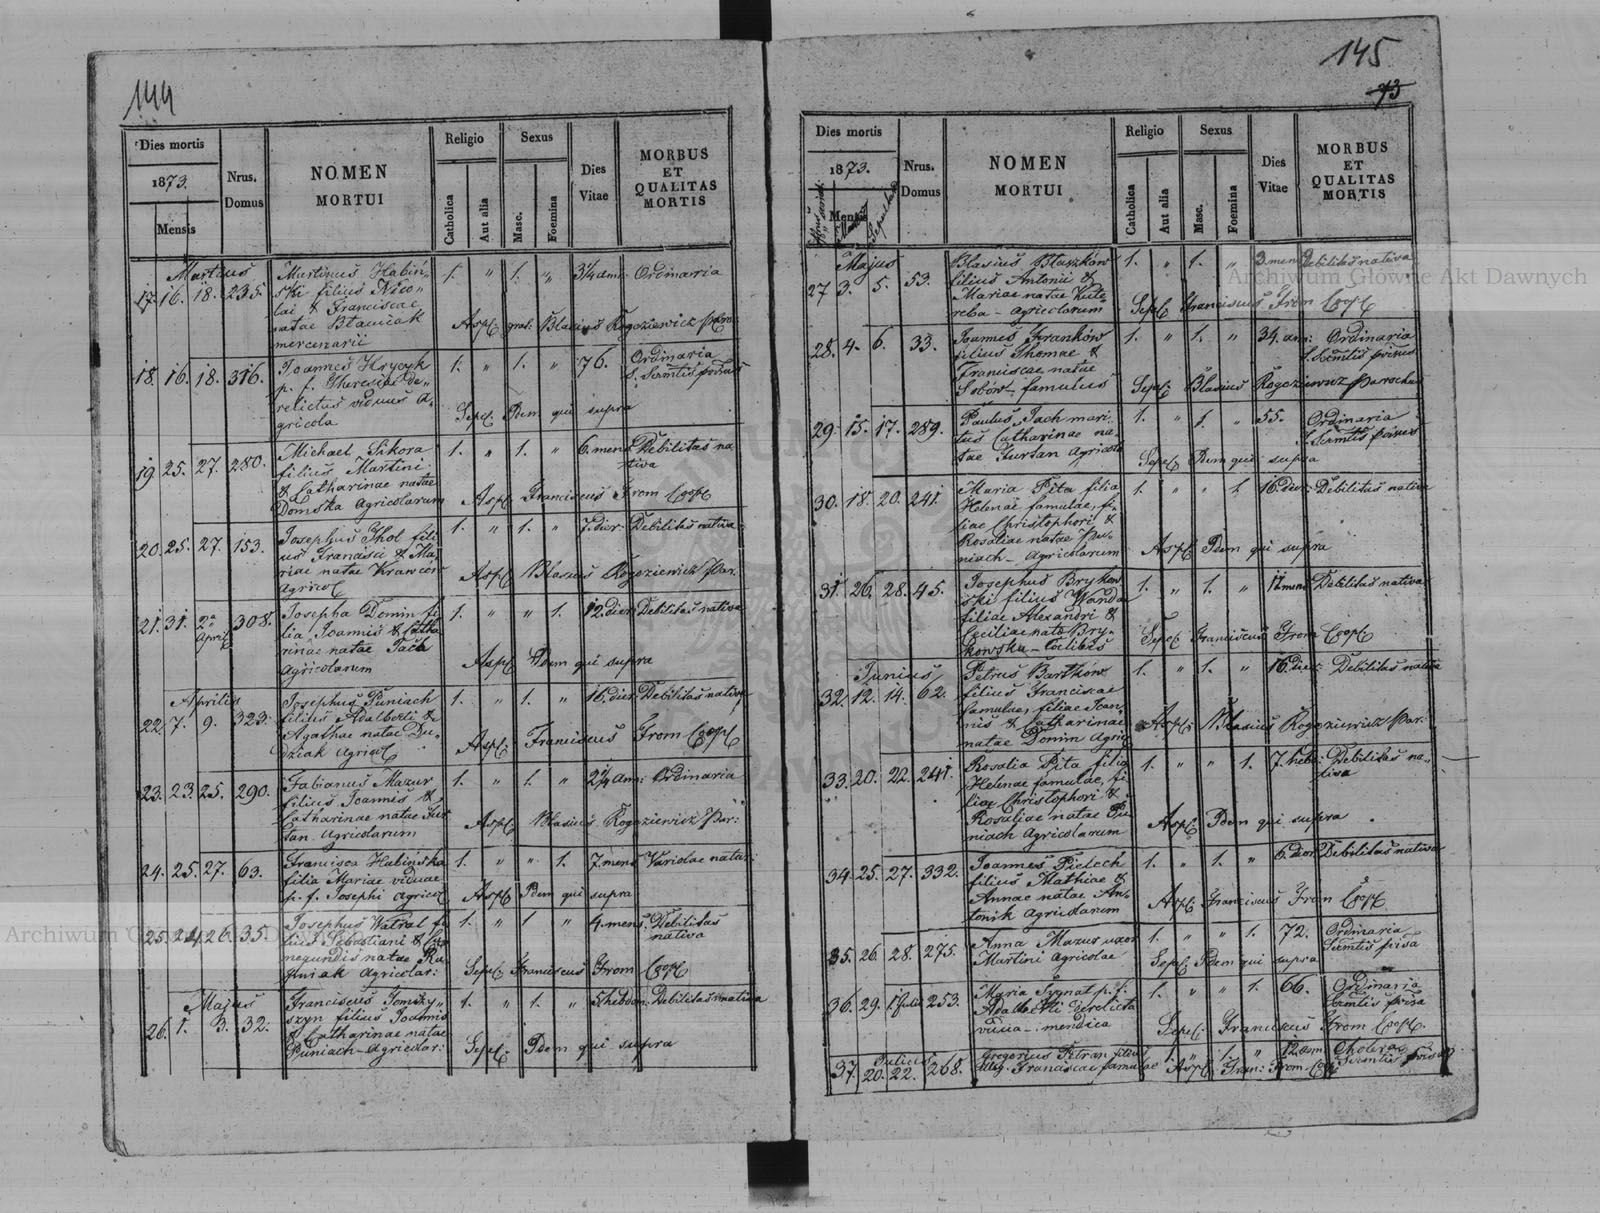 144
Dies mortis
1873.
Mensis
Nrus. Domus
NOMEN
MORTUI
Religio
Catholica
Aut alia
Sexus
Masc.
Foemina
Dies
Vitae
MORBUS
ET
QUALITAS
MORTIS
Martius
17. 16. 18. 235. Martinus Habiń-
ski filius Nico-
lai & Franciscae
natae
mercenarii
1. " 1. " 3¼ ann: Ordinaria
Blasius Rogoziewicz
18. 16. 18. 316. Joannes Hrycyk
p. f. Theresiae de-
relictus viduus a-
gricola
1. " 1. " 76. Ordinaria
S. Scmtis
Sepel: Idem qui supra
19. 25. 27. 280. Michael Sikora
filius Martini
& Catharinae natae
Domska Agricolarum
1. " 1. " 6. mens Debilitas na-
tiva
Franciscus From Coop
20. 25. 27. 153. Josephus Thol fili-
us Francisci & Ma-
riae natae Krawców
Agricol
1. " 1. " 7. dier: Debilitas nativa
Blasius Rogoziewicz Par.
21. 31. 2. April 308. Josepha Domin fi-
lia Joannis & Catha
rinae natae Tach
Agricolarum
1. " " 1. 12. dier Debilitas nativa
Idem qui supra
Aprilis
22. 7. 9. 323. Josephus Puniach
filius Adalberti &
Agathae natae Du-
ziak Agricol
1. " 1. " 16. dier Debilitas nativa
Franciscus From Coop
23. 23. 25. 290. Fabianus Mazur
filius Joannis &
Catharinae natae Fur
tan Agricolarum
1. " 1. " 2¼ ann: Ordinaria
Blasius Rogoziewicz Par:
24. 25. 27. 63. Francisca Habińska
filia Mariae viduae
p. f. Josephi agricol
1. " " 1. 7. mens Variolae natur:
Idem qui supra
25. 24. 26. 35. Josephus Watral fi
lius Sebastiani & Cu
negundis natae Ku
śniak Agricolar:
1. " 1 " 4. mens. Debilitas
nativa
Sepel: Franciscus From Coop
Majus
26. 1. 3. 32. Franciscus Tomszy-
szyn filius Joannis
& Catharinae natae
Puniach Agricolar:
1. " 1. " 5 hebdom: Debilitas nativa
Sepel: Idem qui supra
145
73
Dies mortis
1873.
Mensis
Nrus.
Domus
NOMEN
MORTUI
Religio
Catholica
Aut alia
Sexus
Masc.
Foemina
Dies
Vitae
MORBUS
ET
QUALITAS
MORTIS
Majus
27 3. 5. 53. Blasius Błaszków
filius Antonii &
Mariae natae Kute-
reba - agricolarum
1. " 1. " 3 mens Debilitas nativa
Sepel Franciscus From Coop
28. 4. 6. 33. Joannes Franków
filius Thomae &
Franciscae natae
Sobów famulus
1. " 1. " 34. ann: Ordinaria
S. Scmtis
Sepel: Blasius Rogoziewicz Parochus
29. 15. 17. 289. Paulus Tach mari-
tus Catharinae na-
tae Furtan Agricola
1. " 1. " 55. Ordinaria
S. Scmtis
Sepel Idem qui supra
30. 18. 20. 241. Maria Pita filia
Helenae famulae, fi-
liae Christophori &
Rosaliae natae Pu-
niach - Agricolarum
1. " " 1. 16. dier: Debilitas nativa
Idem qui supra
31. 26. 28. 45. Josephus Brykow
ski filius Wanda
filiae Alexandri &
Ceciliae nata Bry-
kowska - Coelibis
1. " 1. " 11 mens Debilitas nativa
Sepel Franciscus From Coop
Junius
32. 12. 14. 62. Petrus Bartków
filius Franciscae
famulae, filiae Joan-
nis & Catharinae
natae Domin Agric
1. " 1. " 16. dier: Debilitas nativa
Blasius Rogoziewicz Par.
33. 20. 22. 241. Rosalia Pita filia
Helenae famulae, fi-
liae Christophori &
Rosaliae natae Pu
niach Agricolarum
1. " " 1. 7. hebd: Debilitas na-
tiva
Idem qui supra
34. 25. 27. 332. Joannes Pielech
filius Mathiae &
Annae natae An-
tonik Agricolarum
1. " 1. " 6. dier Debilitas nativa
Franciscus From Coop
35. 26. 28. 275. Anna Mazur uxor
Martini Agricolae
1. " " 1. 72. Ordinaria
Scmtis
Sepel Idem qui supra
36. 29. 1 Julii 253. Maria Sygnat p. f.
Adalberti derelicta
vidua - mendica
1. " " 1. 66. Ordinaria
Scmtis
Sepel: Franciscus From Coop.
Julius
37. 20. 22. 268. Gregorius Petran filius
Franciscae famulae
1. " 1. " Cholera
Scmtis
Fran: From Coop
Archiwum Główne Akt Dawnych
Archiwum